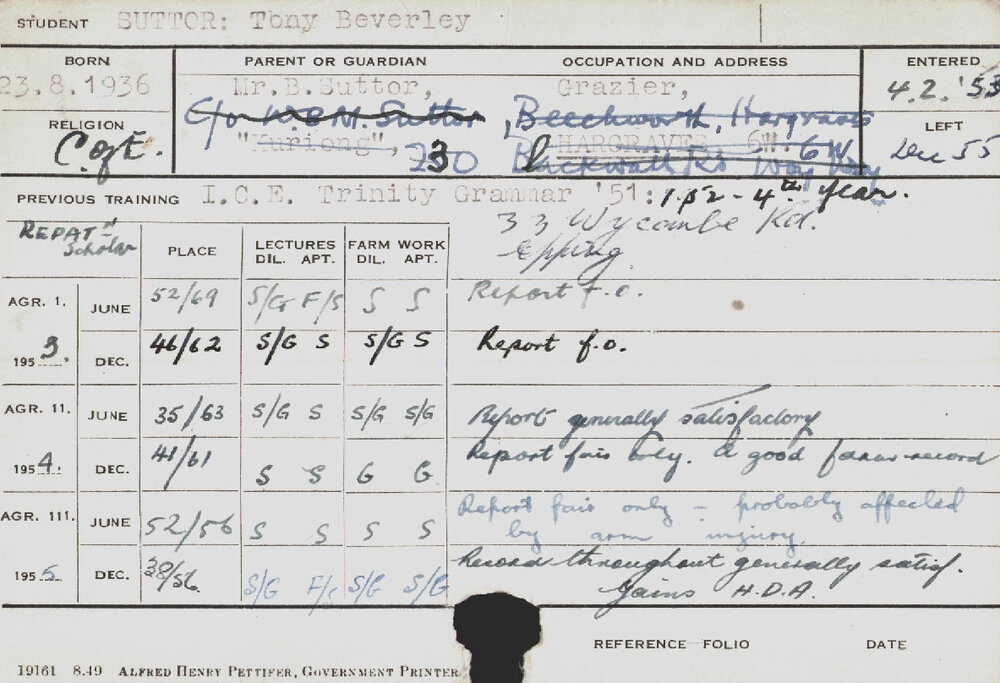 STUDENT SUTTOR: Tony Beverley
BORN PARENT OR GUARDIAN OCCUPATION AND ADDRESS ENTERED
23.8.1936 Mr.B.Suttor, Grazier, 4.2.'53
C/o W.B.M. Suttor, Beechworth, Hargraves
RELIGION "Kuriong", HARGRAVES, 6W. 6W LEFT
C of E. 230 Blackwall Rd Woy Woy Dec 55
PREVIOUS TRAINING I.C.E. Trinity Grammar '51: 1952 - 4th year.
REPATN 33 Wycombe Rd.
Scholar Epping.
PLACE LECTURES FARM WORK
DIL. APT. DIL. APT.
AGR. 1. JUNE 52/69 S/G F/S S S Report f.o.
1953. DEC. 46/62 S/G S S/G S Report f.o.
AGR. 11. JUNE 35/63 S/G S S/G S/G Report generally satisfactory
1954. DEC. 41/61 S S G G Report fair only. A good farm record
AGR. 111. JUNE 52/56 S S S S Report fair only - probably affected
by arm injury.
1955. DEC. 38/56. S/G F/S S/G S/G Record throughout generally satisf.
Gains H.D.A.
REFERENCE FOLIO DATE
19161 8.49 ALFRED HENRY PETTIFER, GOVERNMENT PRINTER